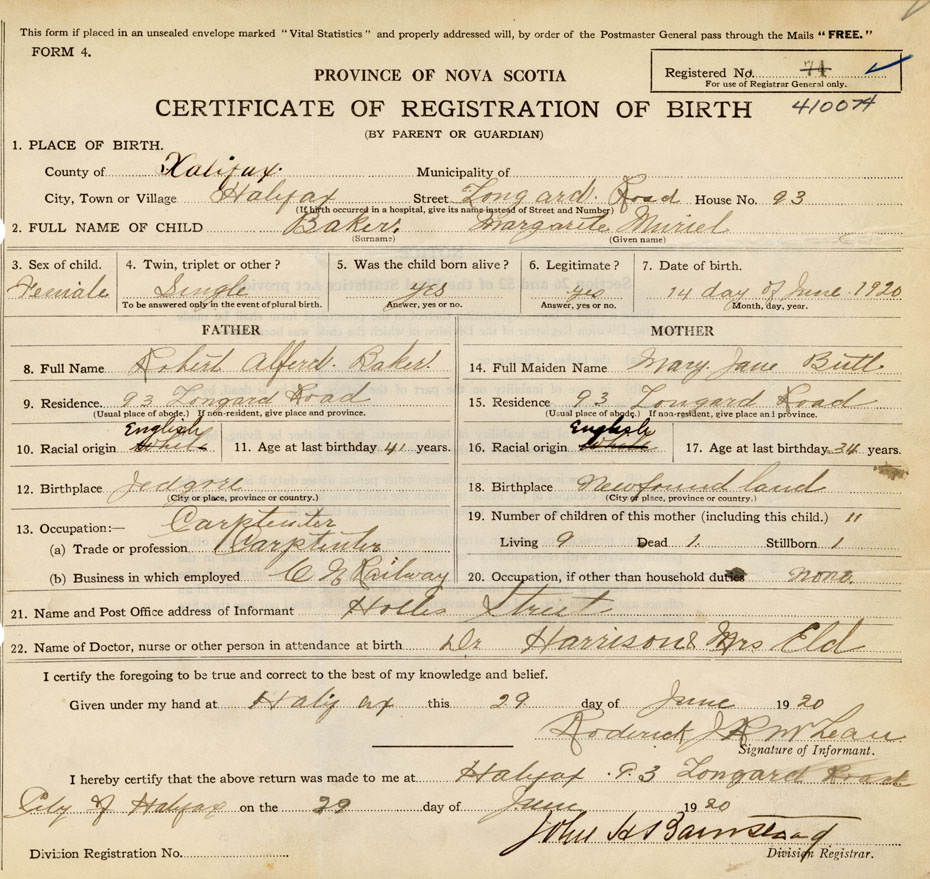 This form if placed in an unsealed envelope marked "Vital Statistics" and properly addressed will, by order of the Postmaster General pass through the Mails "FREE."
FORM 4.
PROVINCE OF NOVA SCOTIA
Registered No. 74
For use of Registrar General only.
CERTIFICATE OF REGISTRATION OF BIRTH 410074
(BY PARENT OR GUARDIAN)
1. PLACE OF BIRTH.
County of Halifax. Municipality of
City, Town or Village Halifax Street Longard. Road House No. 93
(If birth occurred in a hospital, give its name instead of Street and Number)
2. FULL NAME OF CHILD Baker. Margarite Muriel
(Surname) (Given name)
3. Sex of child. 4. Twin, triplet or other? 5. Was the child born alive? 6. Legitimate? 7. Date of birth.
Female Single yes yes 14 day of June. 1920
To be answered only in the event of plural birth. Answer, yes or no. Answer, yes or no. Month, day, year.
FATHER MOTHER
8. Full Name Robert Alferd. Baker. 14. Full Maiden Name Mary. Jane Butt.
9. Residence. 93 Longard Road 15. Residence 93 Longard Road
(Usual place of abode.) If non-resident, give place and province. (Usual place of abode.) If non-resident, give place and province.
English English
10. Racial origin White 11. Age at last birthday 41 years. 16. Racial origin White 17. Age at last birthday 34 years.
12. Birthplace Jedgore 18. Birthplace Newfoundland
(City or place, province or country.) (City or place, province or country.)
13. Occupation:— Carptenter 19. Number of children of this mother (including this child.) 11
(a) Trade or profession Carptenter Living 9 Dead 1. Stillborn 1
(b) Business in which employed C N Railway 20. Occupation, if other than household duties none.
21. Name and Post Office address of Informant Hollis Street
22. Name of Doctor, nurse or other person in attendance at birth Dr Harrison & Mrs Eld
I certify the foregoing to be true and correct to the best of my knowledge and belief.
Given under my hand at Halifax this 29 day of June 1920
Roderick McLean
Signature of Informant.
I hereby certify that the above return was made to me at Halifax. 93 Longard Road
City of Halifax on the 29 day of June 1920
John
Division Registration No. Division Registrar.